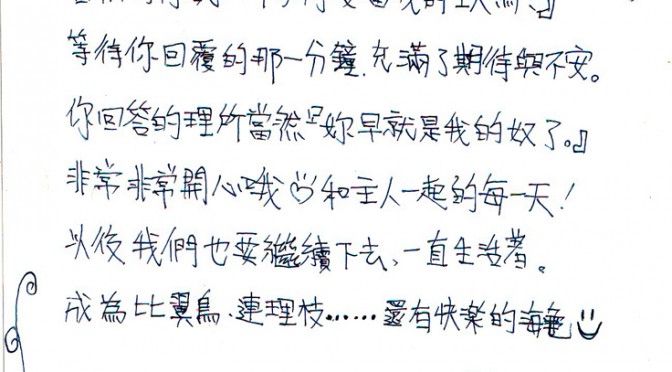 等待你回覆的那一分鐘,充滿了期待與不安。
你回答的理所當然『妳早就是我的奴了。』
非常非常開心哦 和主人一起的每一天!
以後我們也要繼續下去、一直生活著。
成為比翼鳥、連理枝……還有快樂的海龜